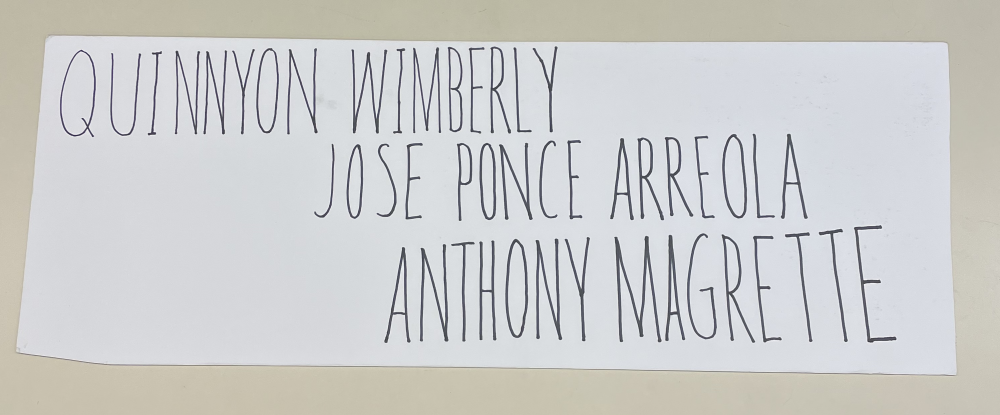 QUINNYON WIMBERLY
JOSE PONCE ARREOLA
ANTHONY MAGRETTE